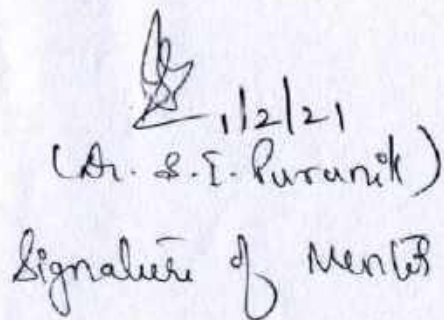 1/2/21
(Dr. S. I. Puranik)
Signature of Mentor